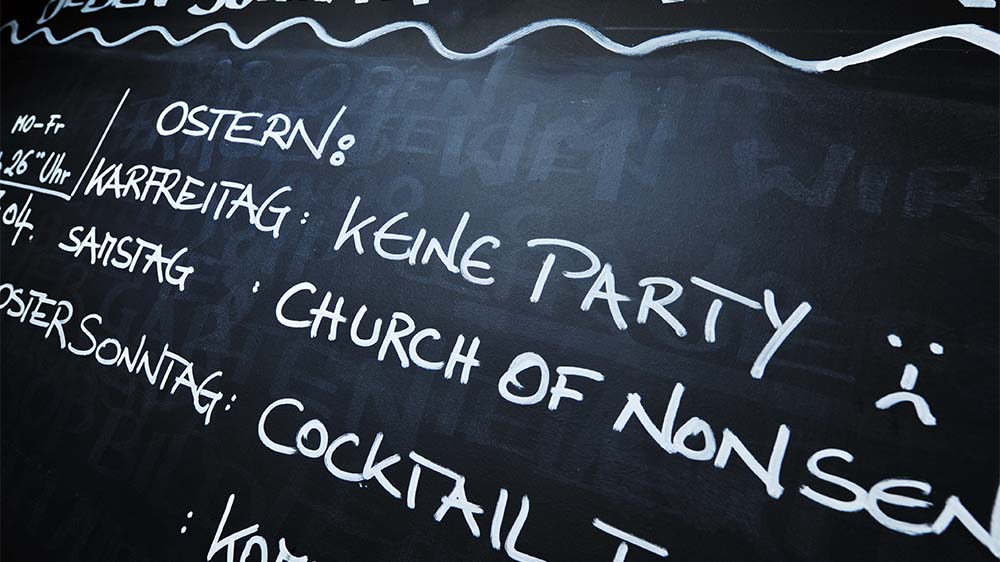 JEDEN
MO-Fr
26°° Uhr
OSTERN:
KARFREITAG: KEINE PARTY :(
.04. SAMSTAG : CHURCH OF NONSEN
OSTERSONNTAG: COCKTAIL T
: